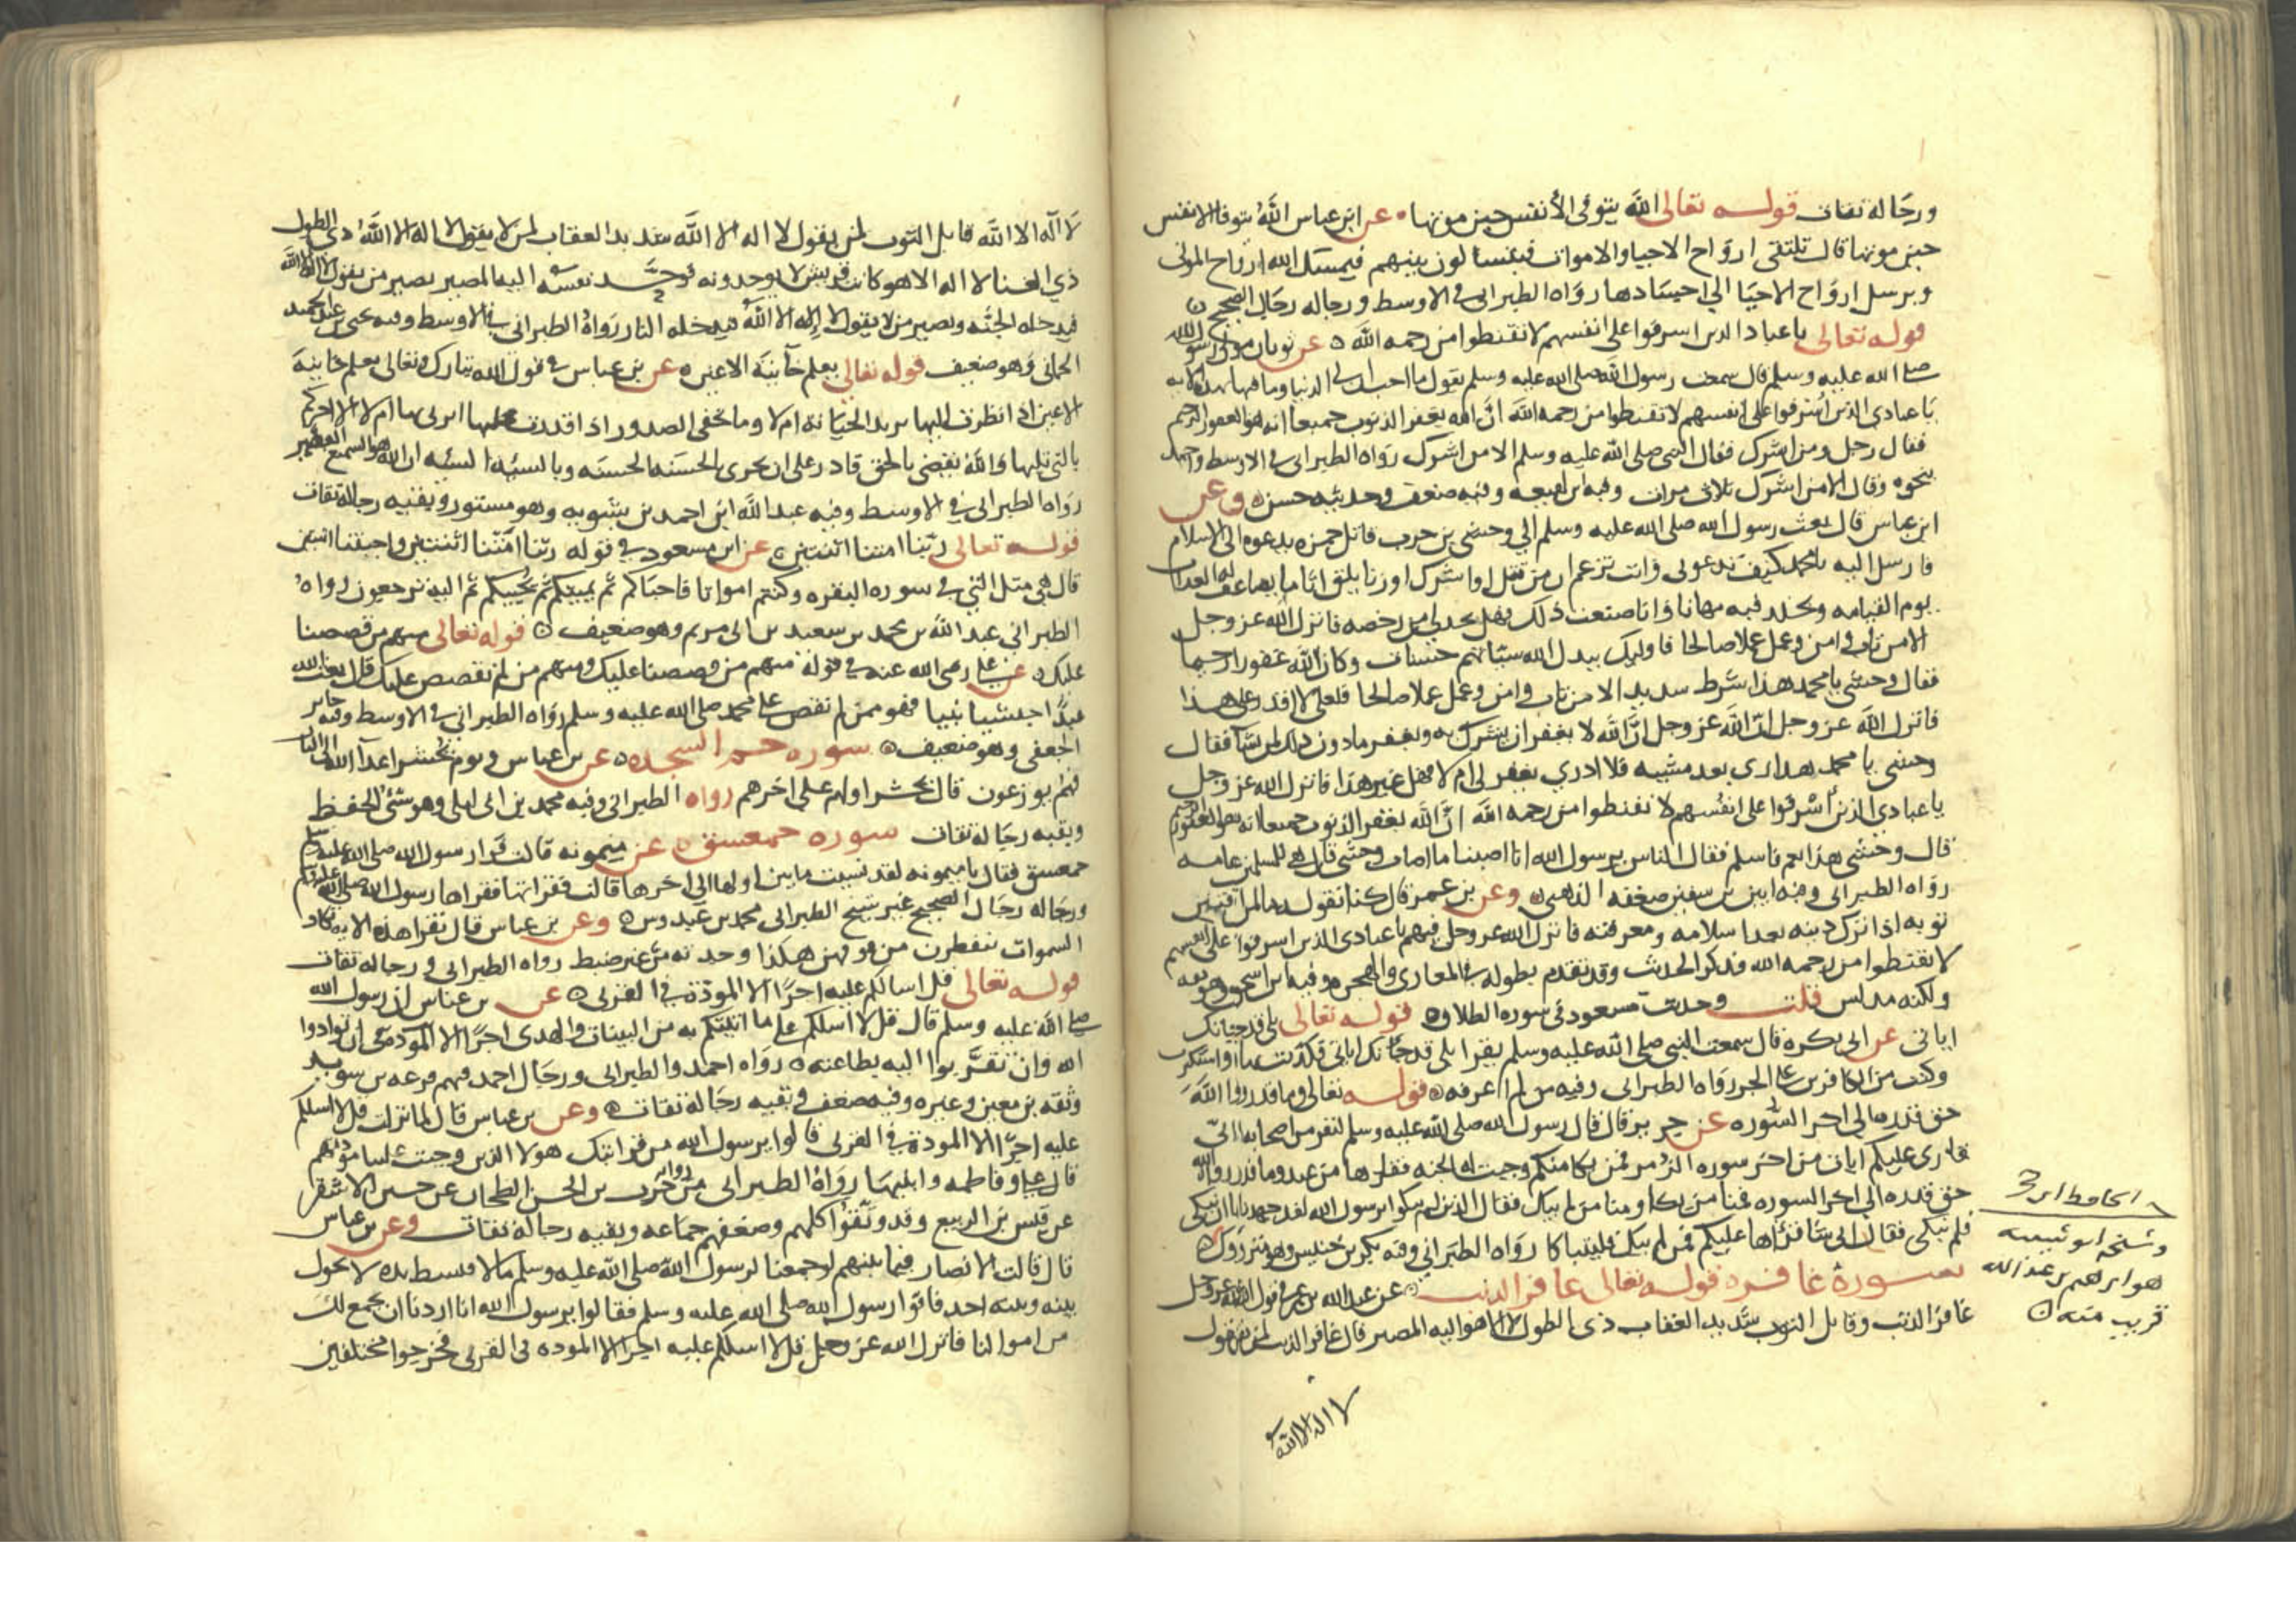 ورجاله ثقات قوله تعالى الله يتوفى الأنفس حين موتها عن ابن عباس الله يتوفا الانفس
حين موتها قال تلتقى ارواح الاحيا والاموات فيتسالون بينهم فيمسك الله ارواح الموتى
ويرسل ارواح الاحيا الى اجسادها رواه الطبراني في الاوسط ورجاله رجال الصحيح
قوله تعالى يا عبادي الذين اسرفوا على انفسهم لا تقنطوا من رحمه الله عن ثوبان مولى رسول الله
صلى الله عليه وسلم قال سمعت رسول الله صلى الله عليه وسلم يقول ما احب ان لى الدنيا وما فيها بهذه الايه
يا عبادي الذين اسرفوا على انفسهم لا تقنطوا من رحمه الله ان الله يغفر الذنوب جميعا انه هو الغفور الرحيم
فقال رجل ومن اشرك فقال النبي صلى الله عليه وسلم الا من اشرك رواه الطبراني في الاوسط واحمد
بنحوه وقال الا من اشرك ثلاث مرات وفيه ابن لهيعه وفيه ضعف وحديثه حسن وعن
ابن عباس قال بعث رسول الله صلى الله عليه وسلم الي وحشي بن حرب قاتل حمزه يدعوه الى الاسلام
فارسل اليه يا محمد كيف تدعوني وانت تزعم ان من قتل او اشرك او زنا يلق اثاما يضاعف له العذاب
يوم القيامه ويخلد فيه مهانا وانا صنعت ذلك فهل تجد لي من رخصه فانزل الله عز وجل
الا من تاب وامن وعمل عملا صالحا فاوليك يبدل الله سيأتهم حسنات وكان الله غفورا رحيما
فقال وحشي يا محمد هذا شرط شديد الا من تاب وامن وعمل عملا صالحا فلعلي لا اقدر على هذا
فانزل الله عز وجل ان الله لا يغفر ان يشرك به ويغفر ما دون ذلك لمن يشا فقال
وحشي يا محمد هذا ارى بعد مشيه فلا ادري يغفر لي ام لا فهل غير هذا فانزل الله عز وجل
يا عبادي الذين اسرفوا على انفسهم لا تقنطوا من رحمه الله ان الله يغفر الذنوب جميعا انه هو الغفور الرحيم
قال وحشي هذا نعم فاسلم فقال الناس يرسول الله انا اصبنا ما اصاب وحشي قال هي للمسلمين عامه
رواه الطبراني وفيه ابين بن سفين ضعفه الذهبي وعن بن عمر قال كنا نقول ما لمن افتتن
توبه اذا ترك دينه بعد اسلامه ومعرفته فانزل الله عز وجل فيهم يا عبادي الذين اسرفوا على انفسهم
لا تقنطوا من رحمه الله فذكر الحديث وقد تقدم بطوله في المغازي والهجره وفيه ابن اسحق وهو ثقه
ولكنه مدلس قلت وحديث مسعود في سوره الطلاق قوله تعالى بلى قد جاتك
اياتى عن ابي بكره قال سمعت النبي صلى الله عليه وسلم يقرا بلى قد جاتك اياتى فكذبت بها واستكبرت
وكنت من الكافرين على الجر رواه الطبراني وفيه من لم اعرفه قوله تعالى وما قدروا الله
حق قدره الي اخر السوره عن جرير قال قال رسول الله صلى الله عليه وسلم لنفر من اصحابه اني
قارى عليكم ايات من اخر سوره الزمر فمن بكا منكم وجبت له الجنه فقراها من عند وما قدروا الله
حق قدره الي اخر السوره فمنا من بكا ومنا من لم يبك فقال الذين لم يبكوا يرسول الله لقد جهدنا ان نبكي
فلم نبكي فقال اني سأقراها عليكم فمن لم يبك فليتباكا رواه الطبراني وفيه بكر بن خنيس وهو متروك
سورة غافر قوله تعالى غافر الذنب عن عبد الله بن عمر في قول الله عز وجل
غافر الذنب وقابل التوب شديد العقاب ذي الطول لا اله الا هو اليه المصير قال غافر الذنب لمن يقول
لا اله الا الله
الحافظ ابن
وشيخه ابو شيبه
هو ابراهيم بن عبد الله
قريب منه
لا اله الا الله قابل التوب لمن يقول لا اله الا الله شديد العقاب لمن لا يقول لا اله الا الله ذي الطول
ذي الغنا لا اله الا هو كانت قريش لا يوحدونه فوحد نفسه اليه المصير مصير من يقول لا اله الا الله
فيدخله الجنه ومصير من لا يقول لا اله الا الله فيدخله النار رواه الطبراني في الاوسط وفيه يحيى بن عبد الحميد
الحماني وهو ضعيف قوله تعالى يعلم خاينة الاعين عن بن عباس في قول الله تبارك وتعالى يعلم خاينة
الاعين اذا نظرت اليها تريد الخيانه ام لا وما تخفي الصدور اذا قدرت عليها اتزني بها ام لا الا اخبركم
بالتي تليها والله يقضي بالحق قادر على ان يجزى بالحسنه الحسنه وبالسيئه السيئه ان الله هو السميع البصير
رواه الطبراني في الاوسط وفيه عبد الله ابن احمد بن شبويه وهو مستور وبقيه رجاله ثقات
قوله تعالى ربنا امتنا اثنتين عن ابن مسعود في قوله ربنا امتنا اثنتين واحييتنا اثنتين
قال هي مثل التي في سوره البقره وكنتم امواتا فاحياكم ثم يميتكم ثم يحييكم ثم اليه ترجعون رواه
الطبراني عبد الله بن محمد بن سعيد بن ابي مريم وهو ضعيف قوله تعالى منهم من قصصنا
عليك عن علي رضى الله عنه في قوله منهم من قصصنا عليك ومنهم من لم نقصص عليك قال بعث الله
عبدا حبشيا نبيا فهو ممن لم نقص على محمد صلى الله عليه وسلم رواه الطبراني في الاوسط وفيه جابر
الجعفي وهو ضعيف سوره حم السجده عن بن عباس ويوم نحشر اعدا الله الى النار
فهم يوزعون قال يحشر اولهم على اخرهم رواه الطبراني وفيه محمد بن ابى ليلى وهو سئ الحفظ
وبقيه رجاله ثقات سوره حمعسق عن ميمونه قالت قرا رسول الله صلى الله عليه وسلم
حمعسق فقال يا ميمونه لقد نسيت ما بين اولها الى اخرها قالت فقراتها فقراها رسول الله صلى الله عليه وسلم
ورجاله رجال الصحيح غير شيخ الطبراني محمد بن عبدوس وعن بن عباس قال تقرا هذه الايه تكاد
السموات تنفطرن من فوقهن هكذا وجدته من غير ضبط رواه الطبراني ورجاله ثقات
قوله تعالى قل لا اسالكم عليه اجرا الا المودة في القربى عن بن عباس ان رسول الله
صلى الله عليه وسلم قال قل لا اسلكم على ما اتيتكم به من البينات والهدى اجرا الا المودة تحى ان توادوا
الله وان تقربوا اليه بطاعته رواه احمد والطبراني ورجال احمد فيهم قزعه بن سويد
وثقه بن معين وغيره وفيه ضعف وبقيه رجاله ثقات وعن بن عباس قال لما نزلت قل لا اسلكم
عليه اجرا الا المودة في القربى قالوا يرسول الله من قرابتك هولا الذين وجبت علينا مودتهم
قال علي وفاطمه وابنيهما رواه الطبراني من رواية حرب بن الحسن الطحان عن حسين الاشقر
عن قيس بن الربيع وقد وثقوا كلهم وضعفهم جماعه وبقيه رجاله ثقات وعن بن عباس
قال قالت الانصار فيما بينهم لو جمعنا لرسول الله صلى الله عليه وسلم مالا فبسط يده لا يحول
بينه وبينه احد فاتوا رسول الله صلى الله عليه وسلم فقالوا يرسول الله انا اردنا ان نجمع لك
من اموالنا فانزل الله عز وجل قل لا اسلكم عليه اجرا الا الموده في القربى فخرجوا مختلفين